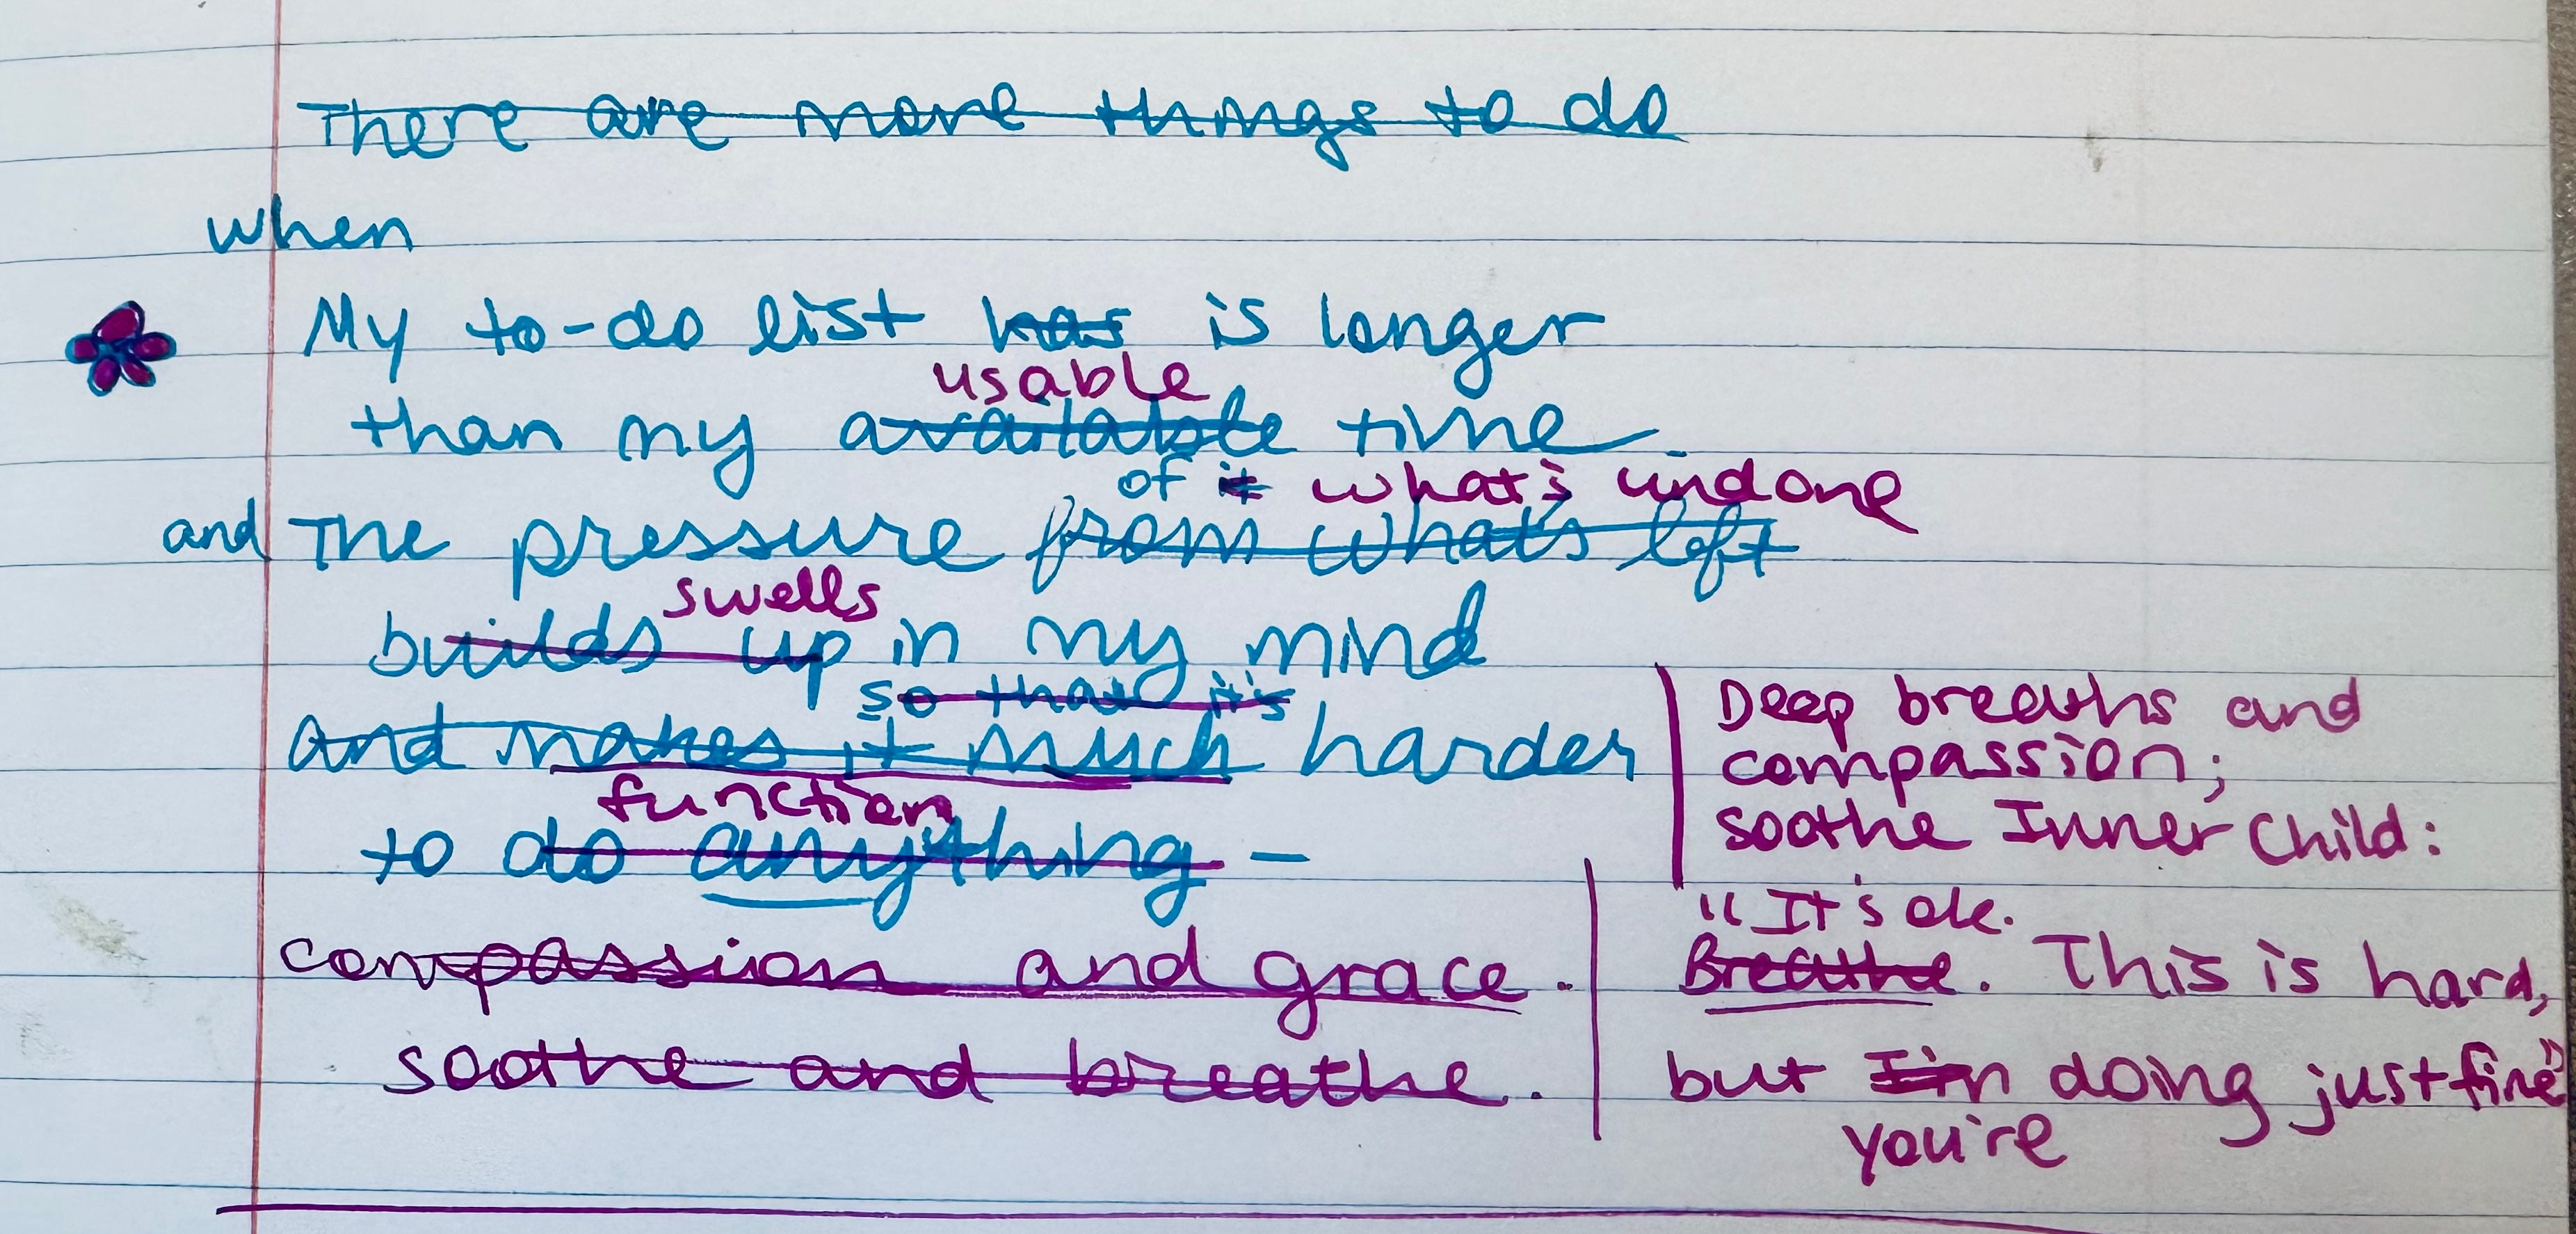 There are more things to do
when
My to-do list has is longer
usable
than my available time.
of it what's undone
and The pressure from what's left
swells
builds up in my mind
so that it's
and makes it much harder
function
to do anything –
compassion and grace.
soothe and breathe.
Deep breaths and
compassion;
soothe Inner Child:
"It's ok.
Breathe. This is hard,
but I'm doing just fine"
you're